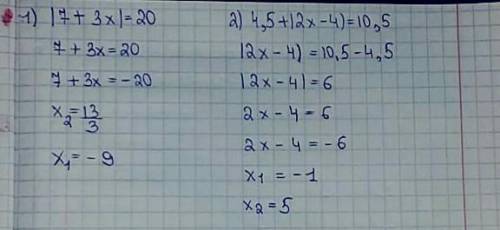 1) |7 + 3x| = 20
7 + 3x = 20
7 + 3x = -20
x₂ = 13/3
x₁ = -9
2) 4,5 + |2x - 4| = 10,5
|2x - 4| = 10,5 - 4,5
|2x - 4| = 6
2x - 4 = 6
2x - 4 = -6
x₁ = -1
x₂ = 5